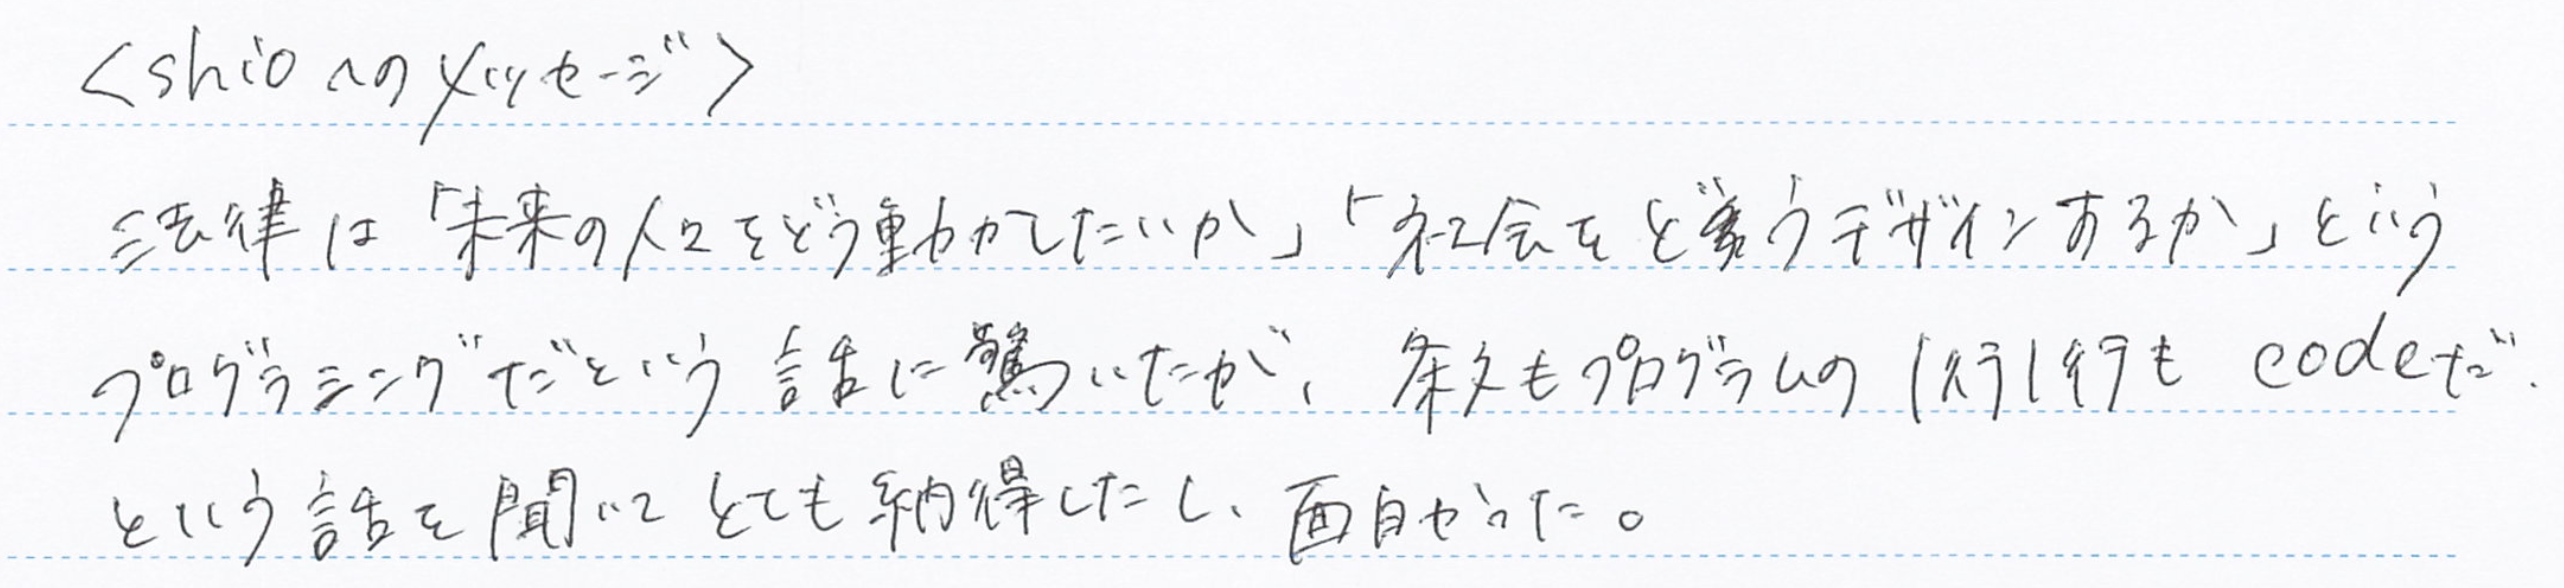 <shioへのメッセージ>
法律は「未来の人々をどう動かしたいか」「社会をどうデザインするか」という
プログラミングだという話に驚いたが、条文もプログラムの1行1行もcodeだ
という話を聞いてとても納得したし、面白かった。